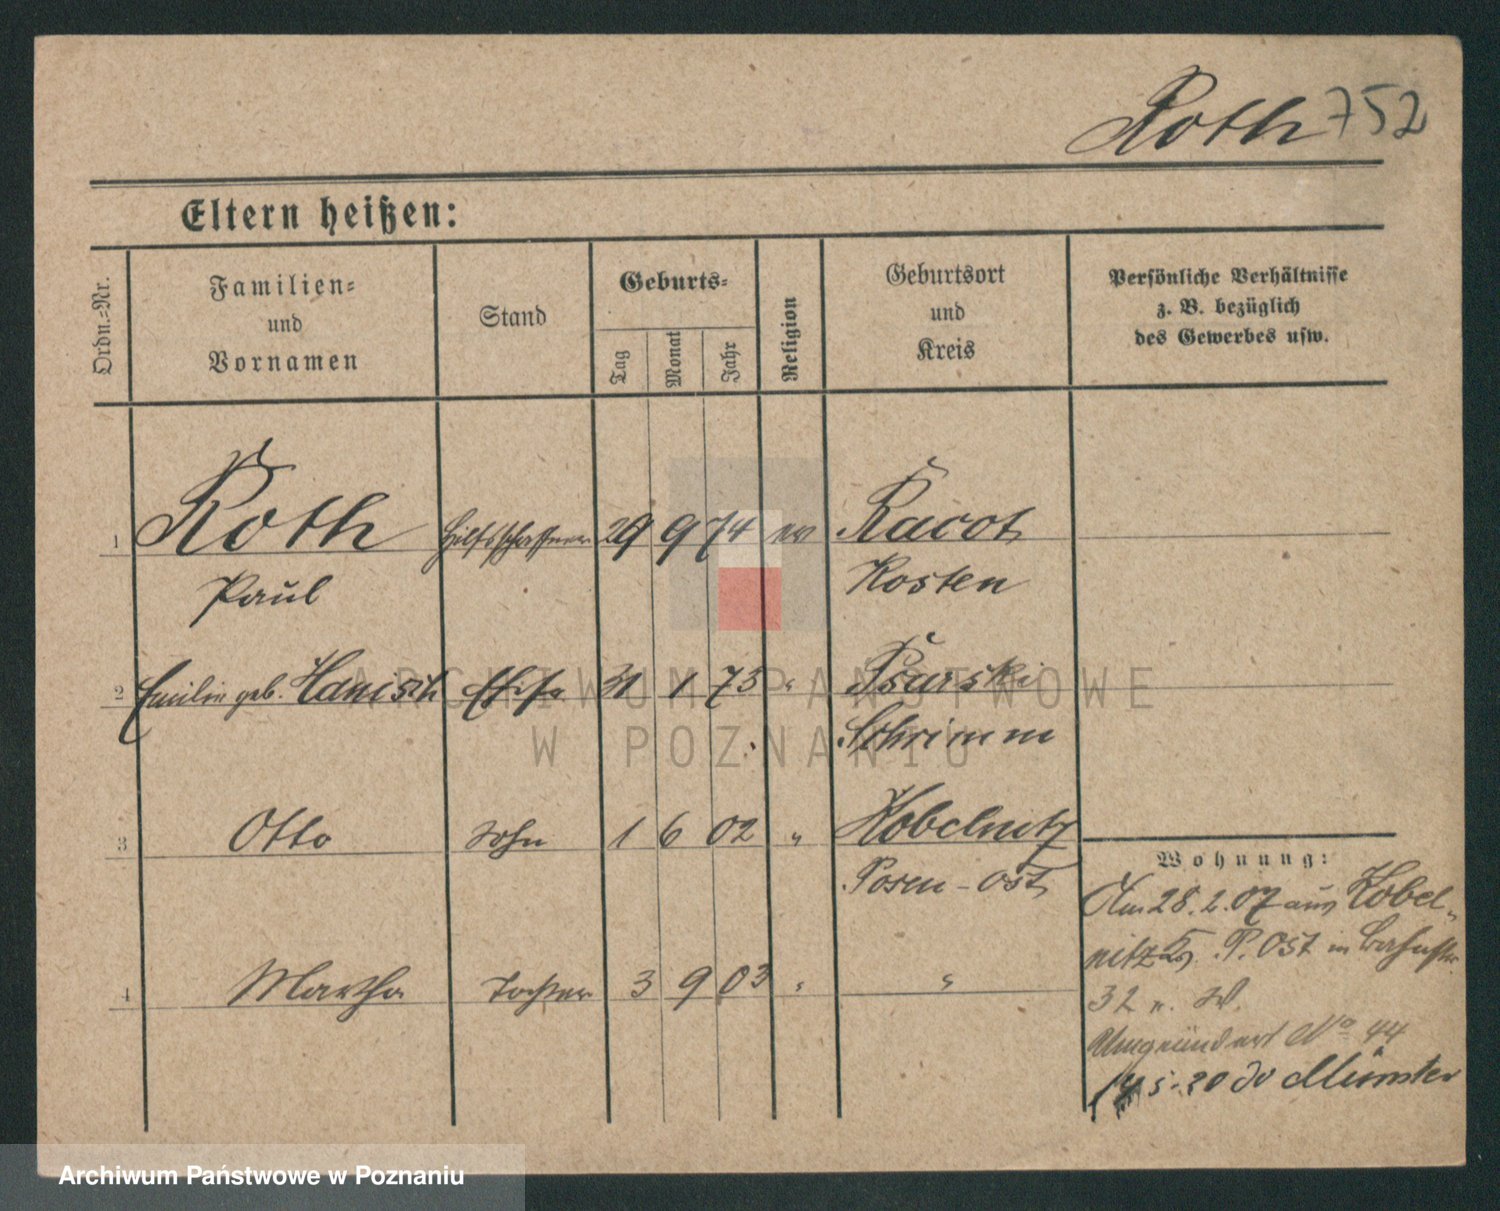 Roth 752
Eltern heißen:
Ordn.-Nr.
Familien-
und
Vornamen
Stand
Geburts-
Tag
Monat
Jahr
Religion
Geburtsort
und
Kreis
Persönliche Verhältnisse
z. B. bezüglich
des Gewerbes usw.
1 Roth Hilfsschaffner 29 9 74 ev Racot
Paul Kosten
2 Emilie geb. Hanisch Ehefr 31 1 75 " Psarski
Schrimm
3 Otto Sohn 1 6 02 " Kobelnitz
Posen-Ost
4 Martha Tochter 3 9 03 " "
Wohnung:
Am 28.2.07 aus Kobel-
nitz P. Ost in Bahnstr.
32 n. W.
Umgeändert No 44
5.20 Münster
ARCHIWUM PAŃSTWOWE
W POZNANIU
Archiwum Państwowe w Poznaniu